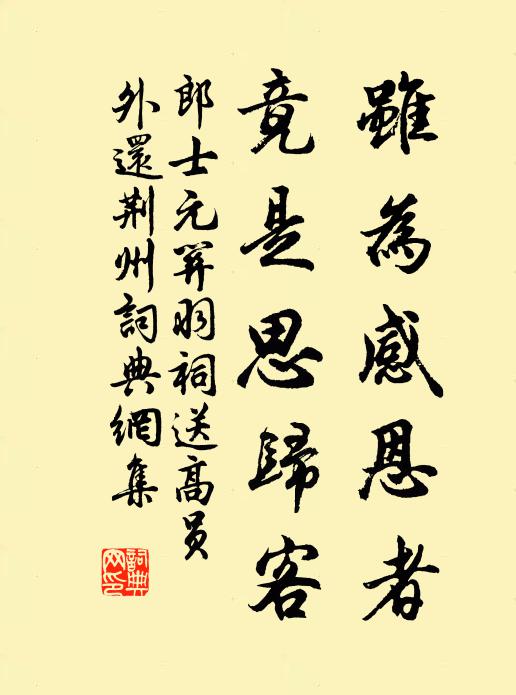 雖為感恩者
竟是思歸客
郎士元關羽祠送高員
外還荆州詞典網集
詞典網印